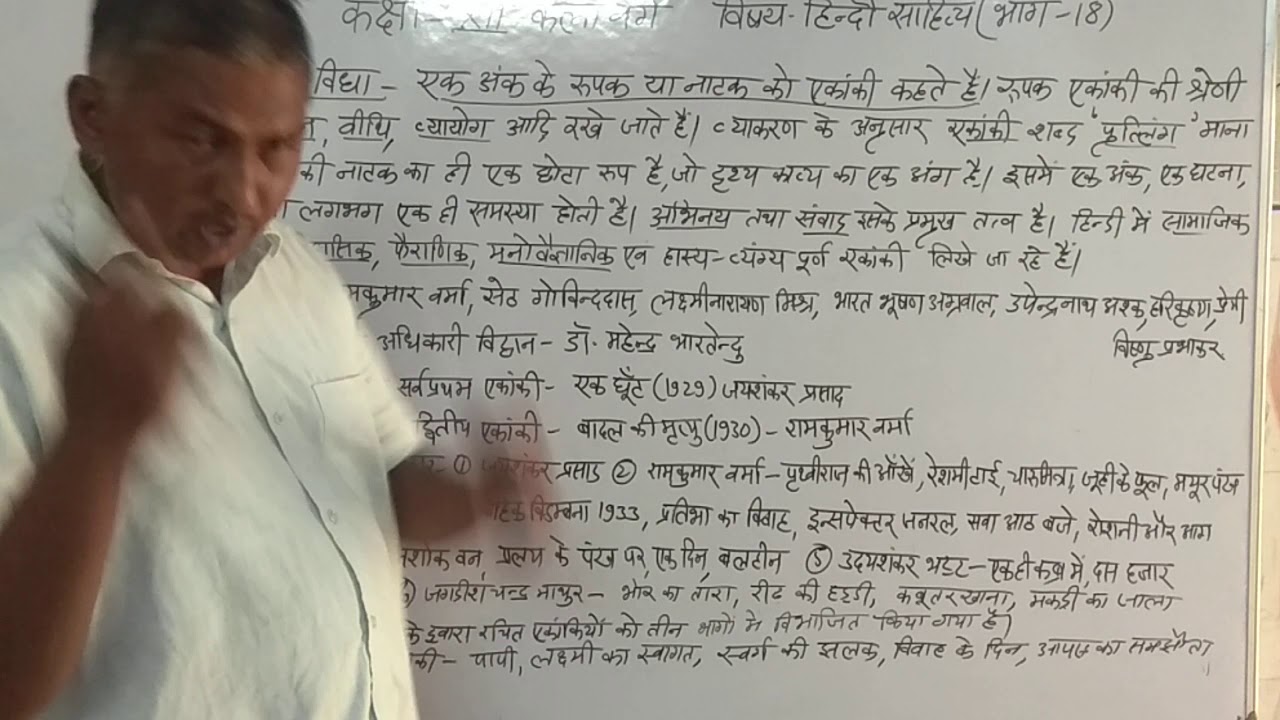 कक्षा - XII कला वर्ग विषय - हिन्दी साहित्य (भाग - 18)
विद्या - एक अंक के रूपक या नाटक को एकांकी कहते है। रूपक एकांकी की श्रेणी
वीथि, व्यायोग आदि रखे जाते है। व्याकरण के अनुसार एकांकी शब्द 'पुल्लिंग' माना
की नाटक का ही एक छोटा रूप है, जो दृश्य काव्य का एक अंग है। इसमें एक अंक, एक घटना,
लगभग एक ही समस्या होती है। अभिनय तथा संवाद इसके प्रमुख तत्व है। हिन्दी में सामाजिक
पौराणिक, मनोवैज्ञानिक एवं हास्य - व्यंग्य पूर्ण एकांकी लिखे जा रहे हैं।
मकुमार वर्मा, सेठ गोविन्ददास, लक्ष्मीनारायण मिश्र, भारत भूषण अग्रवाल, उपेन्द्रनाथ अश्क, हरिकृष्ण प्रेमी
अधिकारी विद्वान - डॉ. महेन्द्र भारतेन्दु विष्णु प्रभाकर
सर्वप्रथम एकांकी - एक घूँट (1929) जयशंकर प्रसाद
द्वितीय एकांकी - बादल की मृत्यु (1930) - रामकुमार वर्मा
① जयशंकर प्रसाद ② रामकुमार वर्मा - पृथ्वीराज की आँखें, रेशमी टाई, चारुमित्रा, जूही के फूल, मयूर पंख
विडम्बना 1933, प्रतिभा का विवाह, इन्सपेक्टर जनरल, सवा आठ बजे, रोशनी और आग
शोक वन, प्रलय के पंख पर, एक दिन, बलहीन ⑤ उदयशंकर भट्ट - एक ही कब्र में, दस हजार
जगदीश चन्द्र माथुर - भोर का तारा, रीढ की हड्डी, कबूतरखाना, मकडी का जाला
के द्वारा रचित एकांकियों को तीन भागों में विभाजित किया गया है।
की - पापी, लक्ष्मी का स्वागत, स्वर्ग की झलक, विवाह के दिन, आपस का समझौता